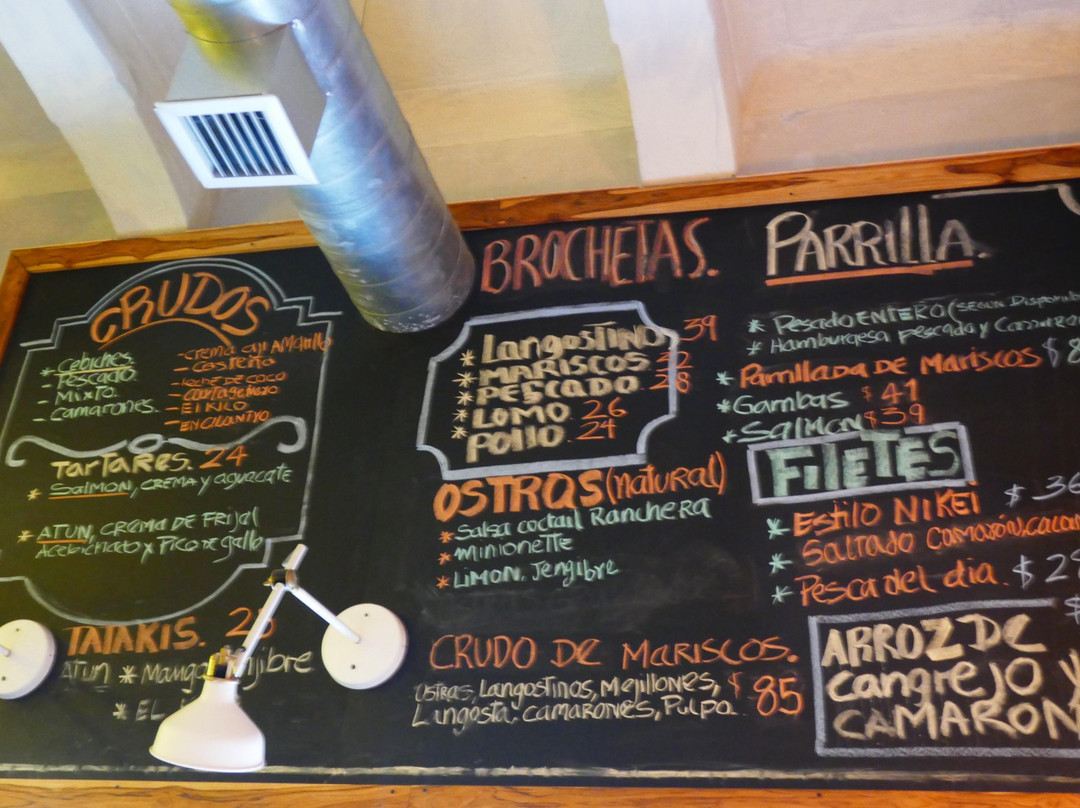 CRUDOS
* Cebiches.
- Pescado.
- Mixto.
- Camarones.
- Crema aji AMArillo
- Costeño
- Leche de coco
- Cartagenero
- El Kilo
- EN CILANTRO
TARTARES. 24
* SALMON, CREMA y aguacate
* ATUN, CREMA DE FRIJOL
y Pico de gallo
TATAKIS.
ATUN * Mango
* EL
BROCHETAS.
* Langostino 39
* MARISCOS 32
* PESCADO 28
* LOMO. 26
* POllO. 24
OSTRAS (natural)
* Salsa coctail RancheRA
* Minionette
* LIMON, Jengibre
CRUDO DE MARISCOS.
OSTRAS, Langostinos, Mejillones, $ 85
Langosta, camarones, Pulpo.
PARRILLA.
* Pescado ENTERO (SEGUN Disponib
* Hamburgesa pescado y Camaron
* Parrillada De Mariscos $ 8
* Gambas $ 41
* SALMON $ 39
FILETES
* Estilo NIKEI $ 36
* Saltado Camarón,
* Pesca del dia. $ 2
ARROZ DE
cangrejo y
CAMARON